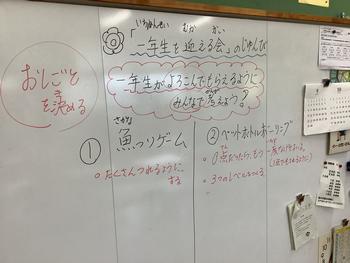 いちねんせい むか かい
「一年生を迎える会」のじゅんび
一年生がよろこんでもらえるように
みんなで考えよう。
おしごと
を決める
き
① さかな
魚つりゲーム
○たくさんつれるように
する
② ペットボトルボーリング
○0点だったら、もう一度
○3つのレベルをつくる